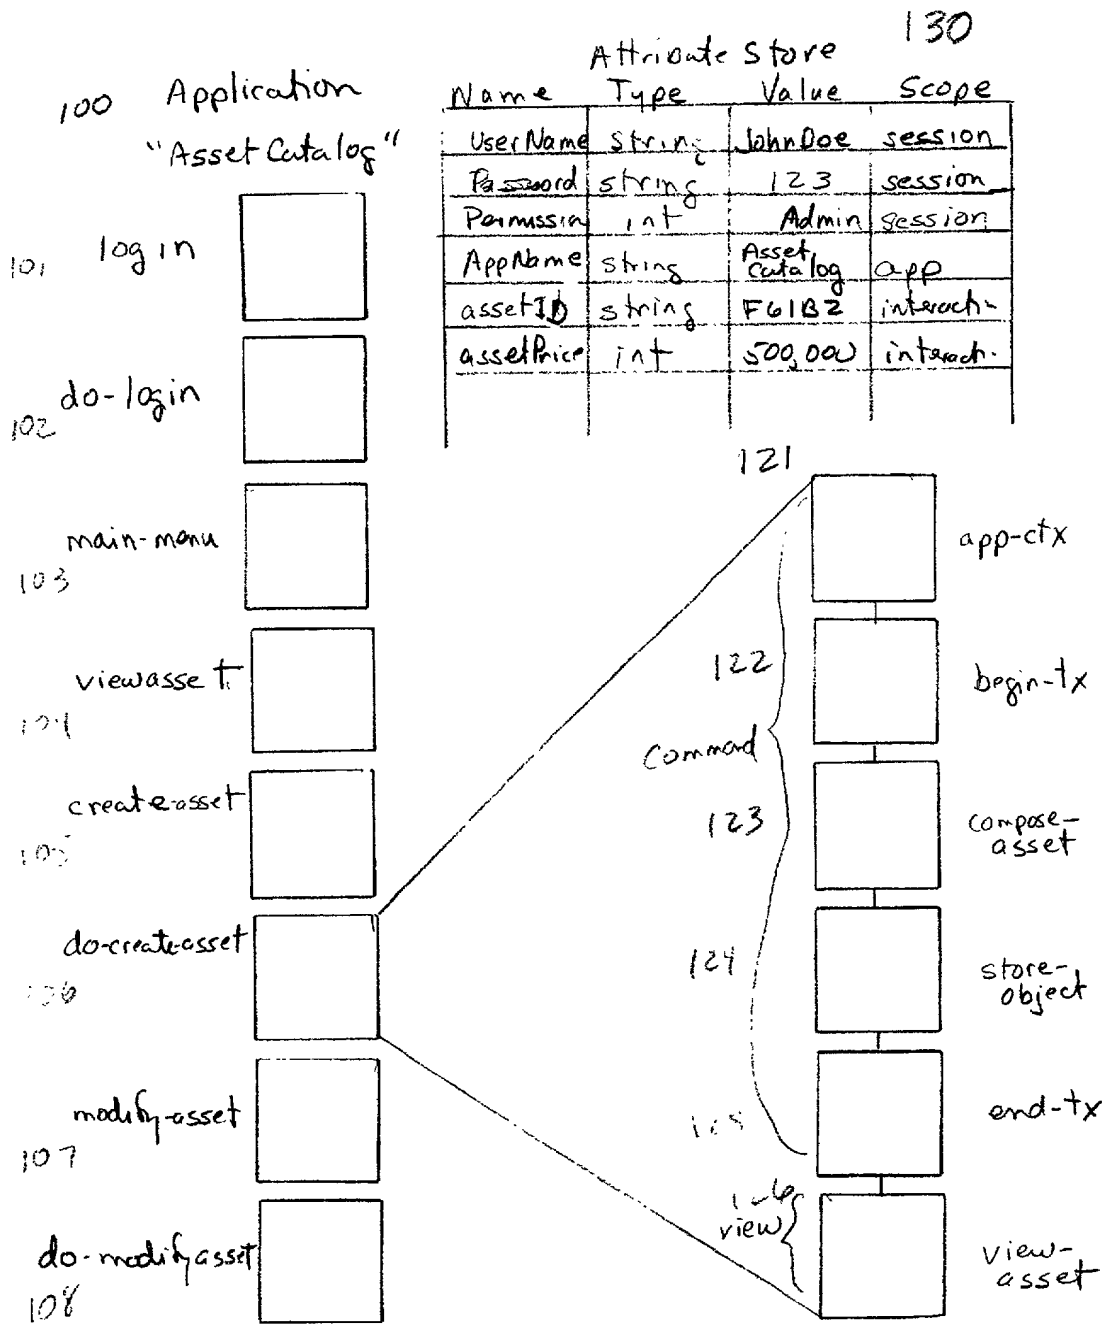 130
Attribute Store
Name Type Value Scope
UserName string JohnDoe session
Password string 123 session
Permission int Admin session
AppName string Asset Catalog app
assetID string F61B2 interacti-
assetPrice int 500,000 interach.
100 Application
"Asset Catalog"
101 login
102 do-login
main-menu
103
viewasset
104
create-asset
105
do-create-asset
106
modify-asset
107
do-modifyasset
108
121
app-ctx
122
begin-tx
Command
123
compose-
asset
124
store-
object
125
end-tx
view
view-
asset